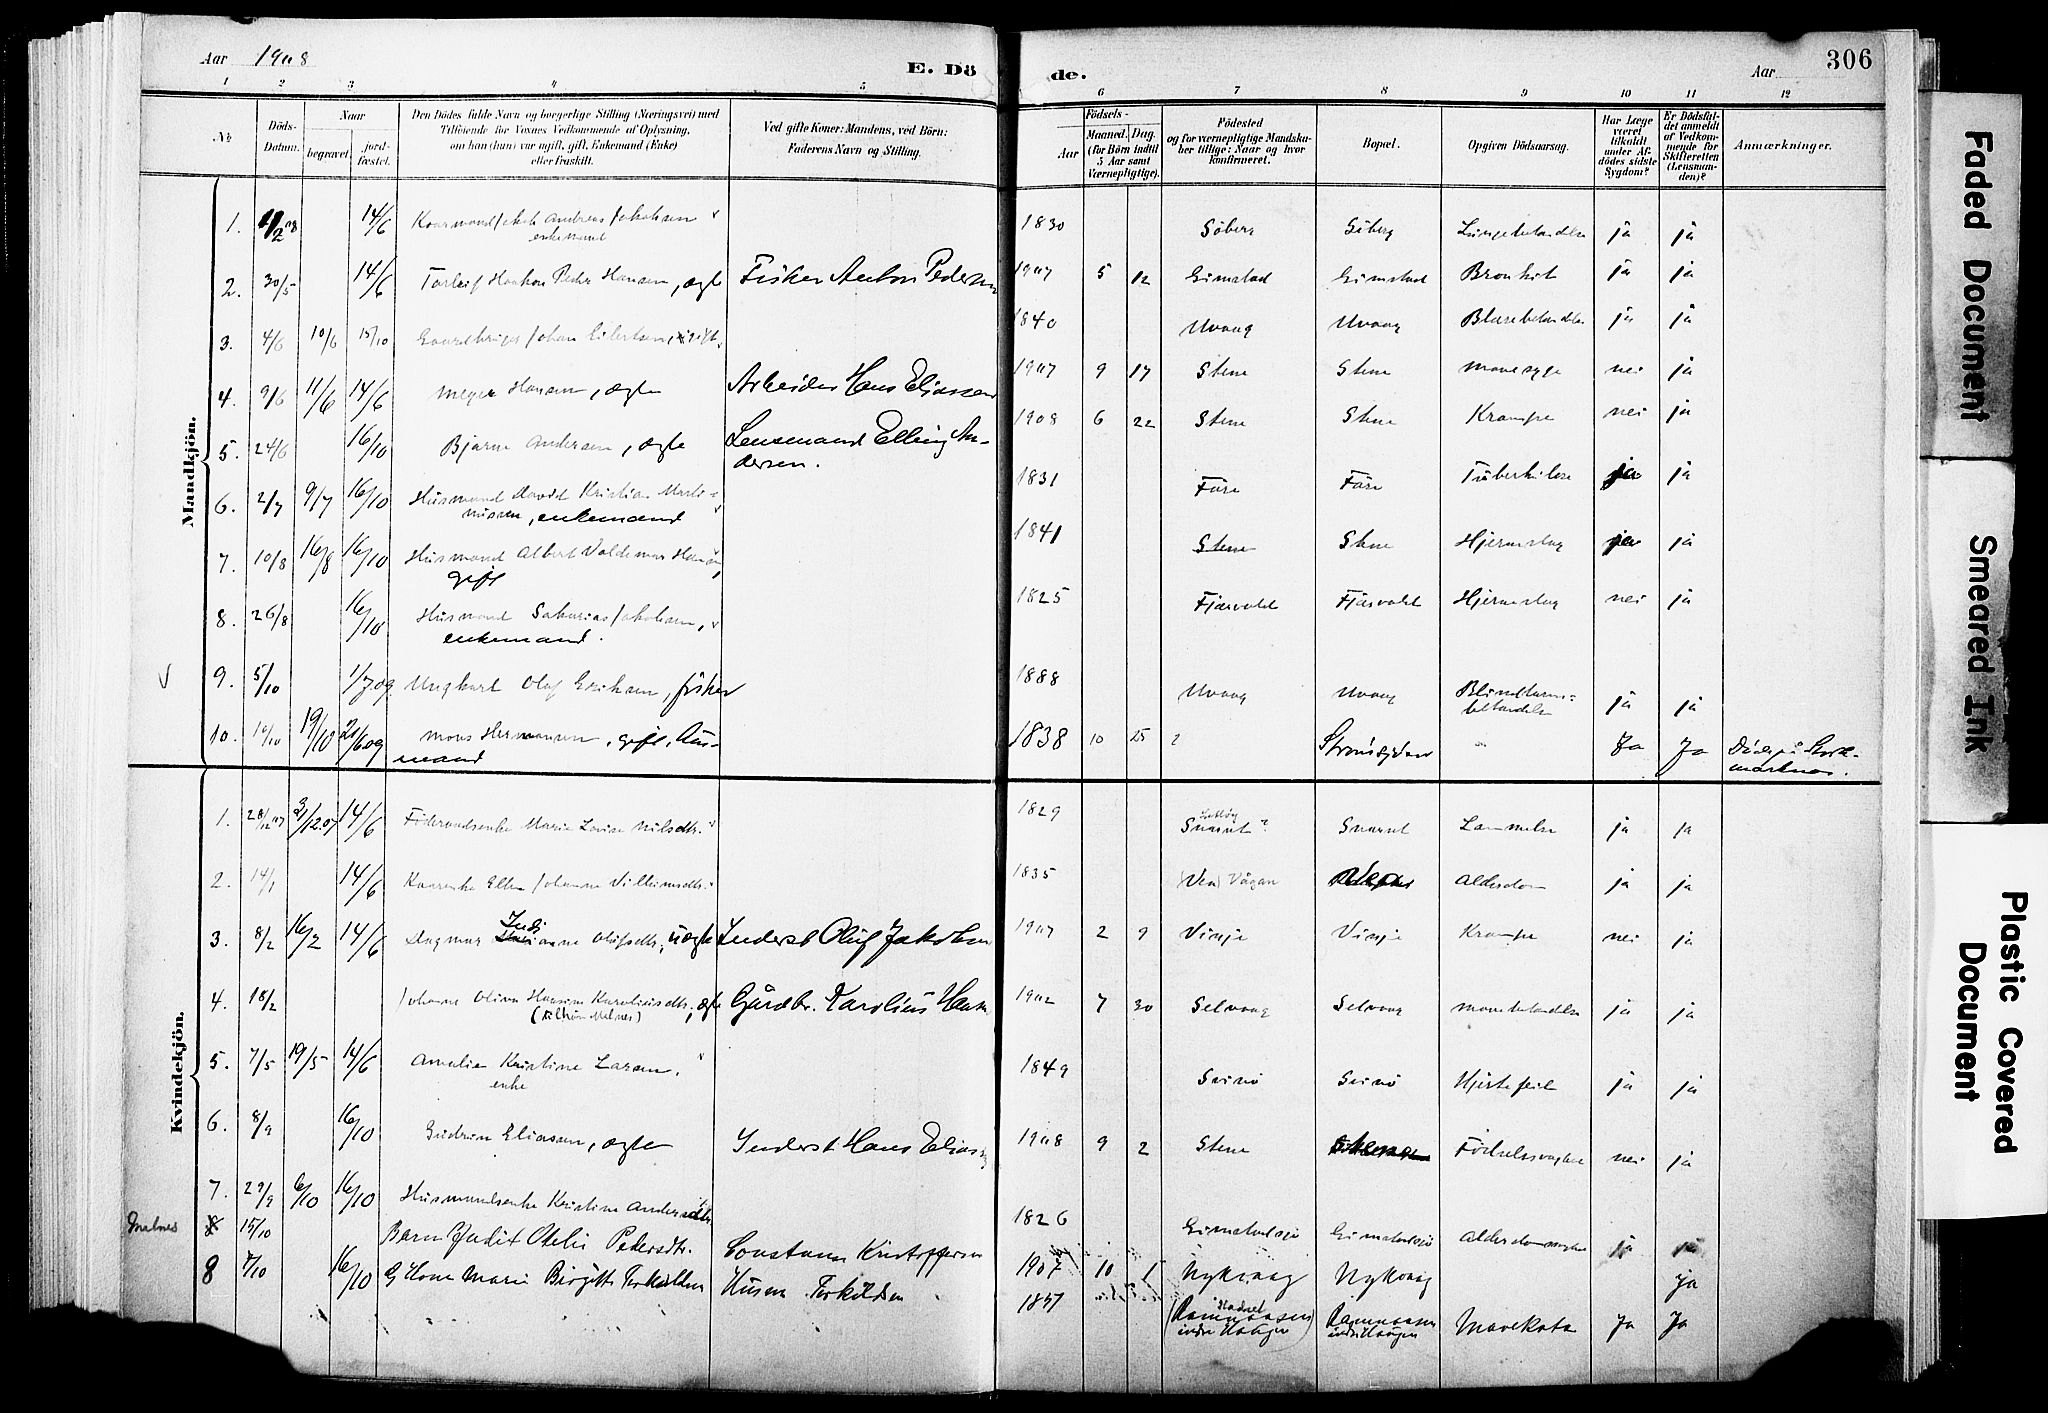 Aar 1908
E. Dö de.
Aar 306
1 2 3 4 5 6 7 8 9 10 11 12
No
Döds-Datum.
Naar
begravet
jord-fæstet.
Den Dödes fulde Navn og borgerlige Stilling (Næringsvei) med
Tilföiende for Voxnes Vedkommende af Oplysning,
om han (hun) var ugift, gift, Enkemand (Enke)
eller fraskilt.
Ved gifte Koner: Mandens, ved Börn:
Faderens Navn og Stilling.
Födsels-
Aar
Maaned. Dag.
(for Börn indtil
5 Aar samt
Værnepligtige).
Födested
og for værnepligtige Mandska-
ber tillige: Naar og hvor
konfirmeret.
Bopæl.
Opgiven Dödsaarsag.
Har Læge
været
tilkaldt
under Af-
dödes sidste
Sygdom?
Er Dödsfal-
det anmeldt
af Vedkom-
mende for
Skifteretten
(Lensman-
den)?
Anmærkninger.
Mandkjön.
1. 14/6 Andreas Jakobsen enkemand 1830 Söberg Söberg Lungebetændelse ja ja
2. 30/5 14/6 Torleif Haakon Peder Hansen, ægte Fisker Anton Pedersen 1907 5 12 Gimstad Gimstad Bronkit ja ja
3. 4/6 10/6 15/10 Gaardbruger Johan Eilertsen, gift. 1840 Uvaag Uvaag Blærebetændelse ja ja
4. 9/6 11/6 14/6 Meyer Hansen, ægte Arbeider Hans Eliassen 1907 9 17 Stene Stene Mavesyge nei ja
5. 24/6 16/10 Bjarne Andersen, ægte Lensmand Elling An-
dersen. 1908 6 22 Stene Stene Krampe nei ja
6. 2/7 9/7 16/10 Husmand David Kristian Marti-
nussen, enkemand 1831 Före Före Tuberkulose ja ja
7. 10/8 16/8 16/10 Husmand Albert Valdemar Hansen,
gift 1841 Stene Stene Hjerneslag ja ja
8. 26/8 16/10 Husmand Sakarias Jakobsen,
enkemand. 1825 Fjærvold Fjærvold Hjerneslag nei ja
9. 5/10 1/7 09 Ungkarl Olaf Eriksen, fisker 1888 Uvaag Uvaag Blindtarms-
betændelse ja ja
10. 10/10 19/10 Mons Hermansen, gift, Hus-
mand 1838 10 15 ? Ja Ja Död på Stok-
marknes.
Kvindekjön.
1. 28/12 07 3/12.07 14/6 Föderaadsenke Marie Lovise Nilsdtr. 1829 Snarset ? Snarset Lammelse ja ja
2. 14/1 14/6 Kaarenke Ellen Johanne Villiumsdtr. 1835 Vågan Alderdom ja ja
3. 8/2 16/2 14/6 Dagmar Indianne Olufsdtr., uægte Inderst Oluf Jakobsen 1907 2 9 Vinje Vinje Krampe nei ja
4. 18/2 Johanne Olivie Hansine Karoliusdtr., ægte Gårdbr. Karolius Hansen 1902 7 30 Selvaag Selvaag Mavebetændelse ja ja
5. 7/5 19/5 14/6 Amalie Kristine Larsen.
enke 1849 Svinö Svinö Hjertefeil ja ja
6. 8/9 16/10 Gudrun Eliassen, ægte Inderst Hans Eliassen 1908 9 2 Stene Födselssvaghed nei ja
7. 29/9 6/10 16/10 Husmandsenke Kristine Andersdtr. 1826 Gimstadsjö Gimstadsjö ja ja
Malnes 15/10 Barn Judit Otelie Pedersdtr. Constans Kristoffersen 1907 10 1 Nykvaag Nykvaag ja
8 7/10 16/10 G. Kone Marie Birgitte Torkildsen Husm. Torkildsen 1857 Mavekatar Ja Ja
Faded Document
Smeared Ink
Plastic Covered
Document